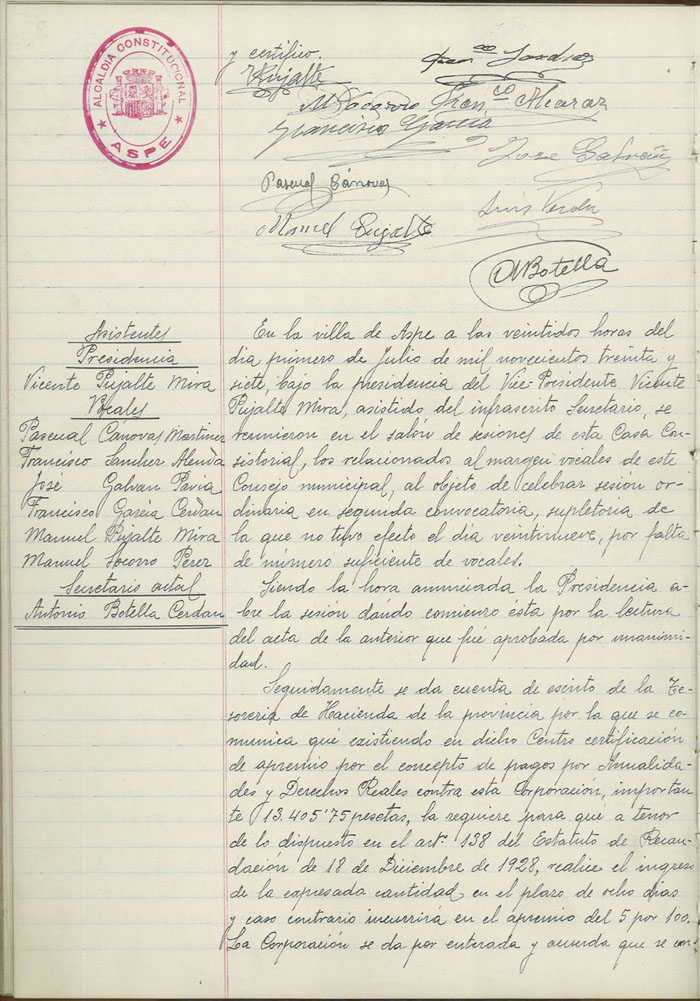 ALCALDIA CONSTITUCIONAL
ASPE
y certifico.
VPujalte
Fran.co Alcaraz
M Socorro
Francisco García
José Galvañ
Pascual Cánovas
Luis Verdu
Manuel Pujalte
ABotella
Asistentes
Presidencia
Vicente Pujalte Mira
Vocales
Pascual Cánovas Martinez
Francisco Sanchez Alenda
José Galvan Pavia
Francisco García Cerdan
Manuel Pujalte Mira
Manuel Socorro Perez
Secretario actal
Antonio Botella Cerdan
En la villa de Aspe a las veintidos horas del
dia primero de Julio de mil novecientos treinta y
siete, bajo la presidencia del Vice-Presidente Vicente
Pujalte Mira, asistido del infrascrito Secretario, se
reunieron en el salón de sesiones de esta Casa Con-
sistorial, los relacionados al margen vocales de este
Consejo municipal, al objeto de celebrar sesión or-
dinaria en segunda convocatoria, supletoria de
la que no tuvo efecto el día veintinueve, por falta
de número suficiente de vocales.
Siendo la hora anunciada la Presidencia a-
bre la sesión dando comienzo ésta por la lectura
del acta de la anterior que fué aprobada por unanimi-
dad.
Seguidamente se da cuenta de escrito de la Te-
soreria de Hacienda de la provincia por la que se co-
munica que existiendo en dicho Centro certificación
de apremio por el concepto de pagos por Anualida-
des y Derechos Reales contra esta Corporación, importan-
te 13.405'75 pesetas, la requiere para que a tenor
de lo dispuesto en el artº 138 del Estatuto de Recau-
dación de 18 de Diciembre de 1928, realice el ingreso
de la expresada cantidad en el plazo de ocho dias
y caso contrario incurrirá en el apremio del 5 por 100.
La Corporación se da por enterada y acuerda que se con-